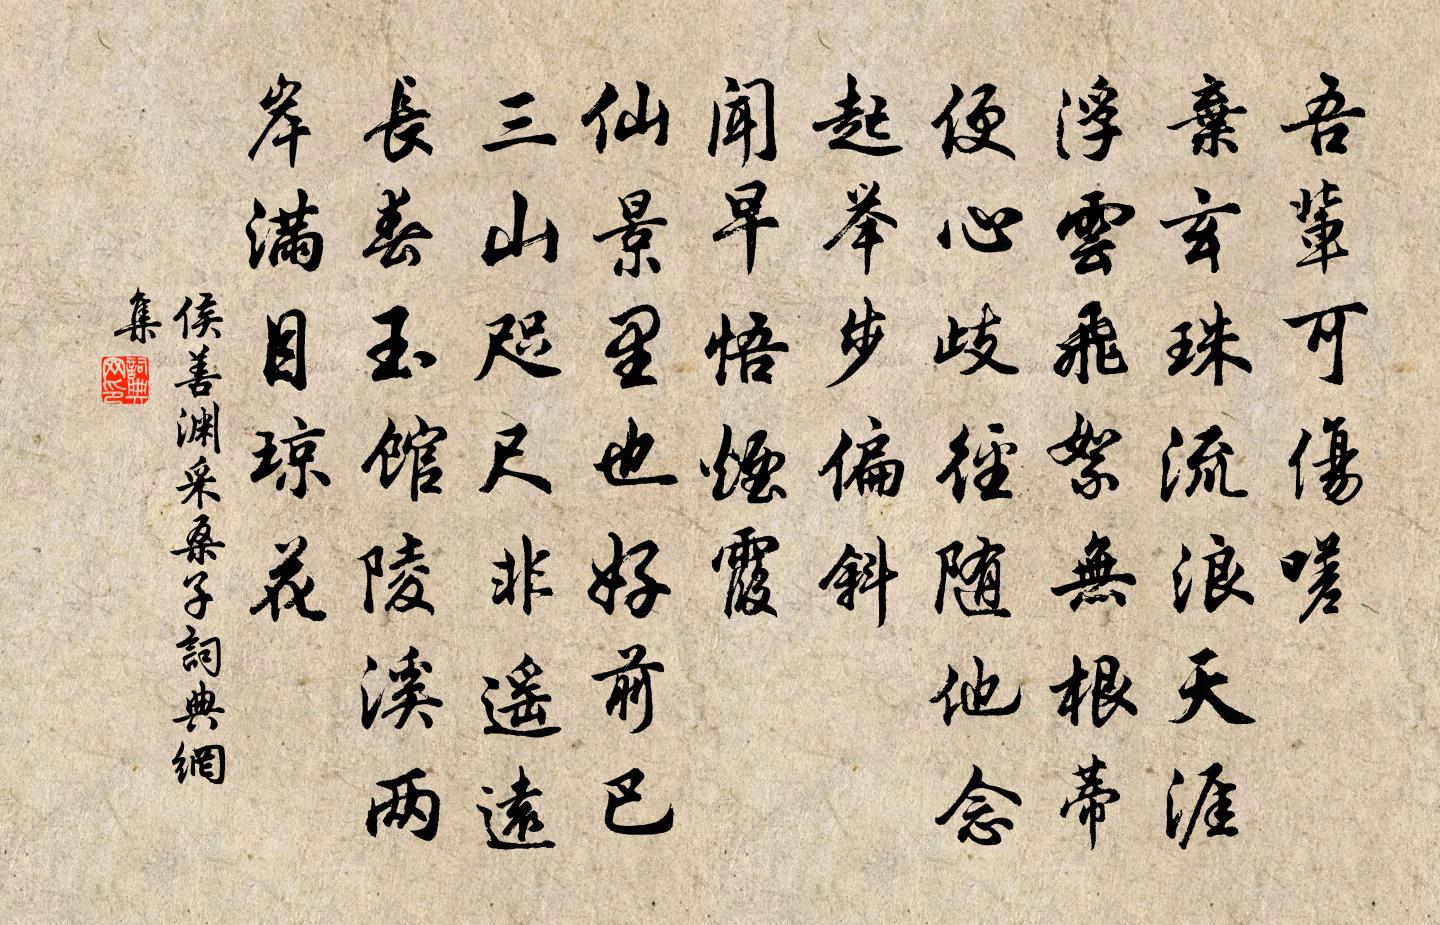 吾輩可傷嗟
棄玄珠流浪天涯
浮雲飛絮無根蒂
便心歧徑随他念
起举步偏斜
闻早悟煙霞
仙景里也好前已
三山咫尺非遥遠
長春玉馆陵溪两
岸满目琼花
侯善渊采桑子詞典網
集
詞典
网印